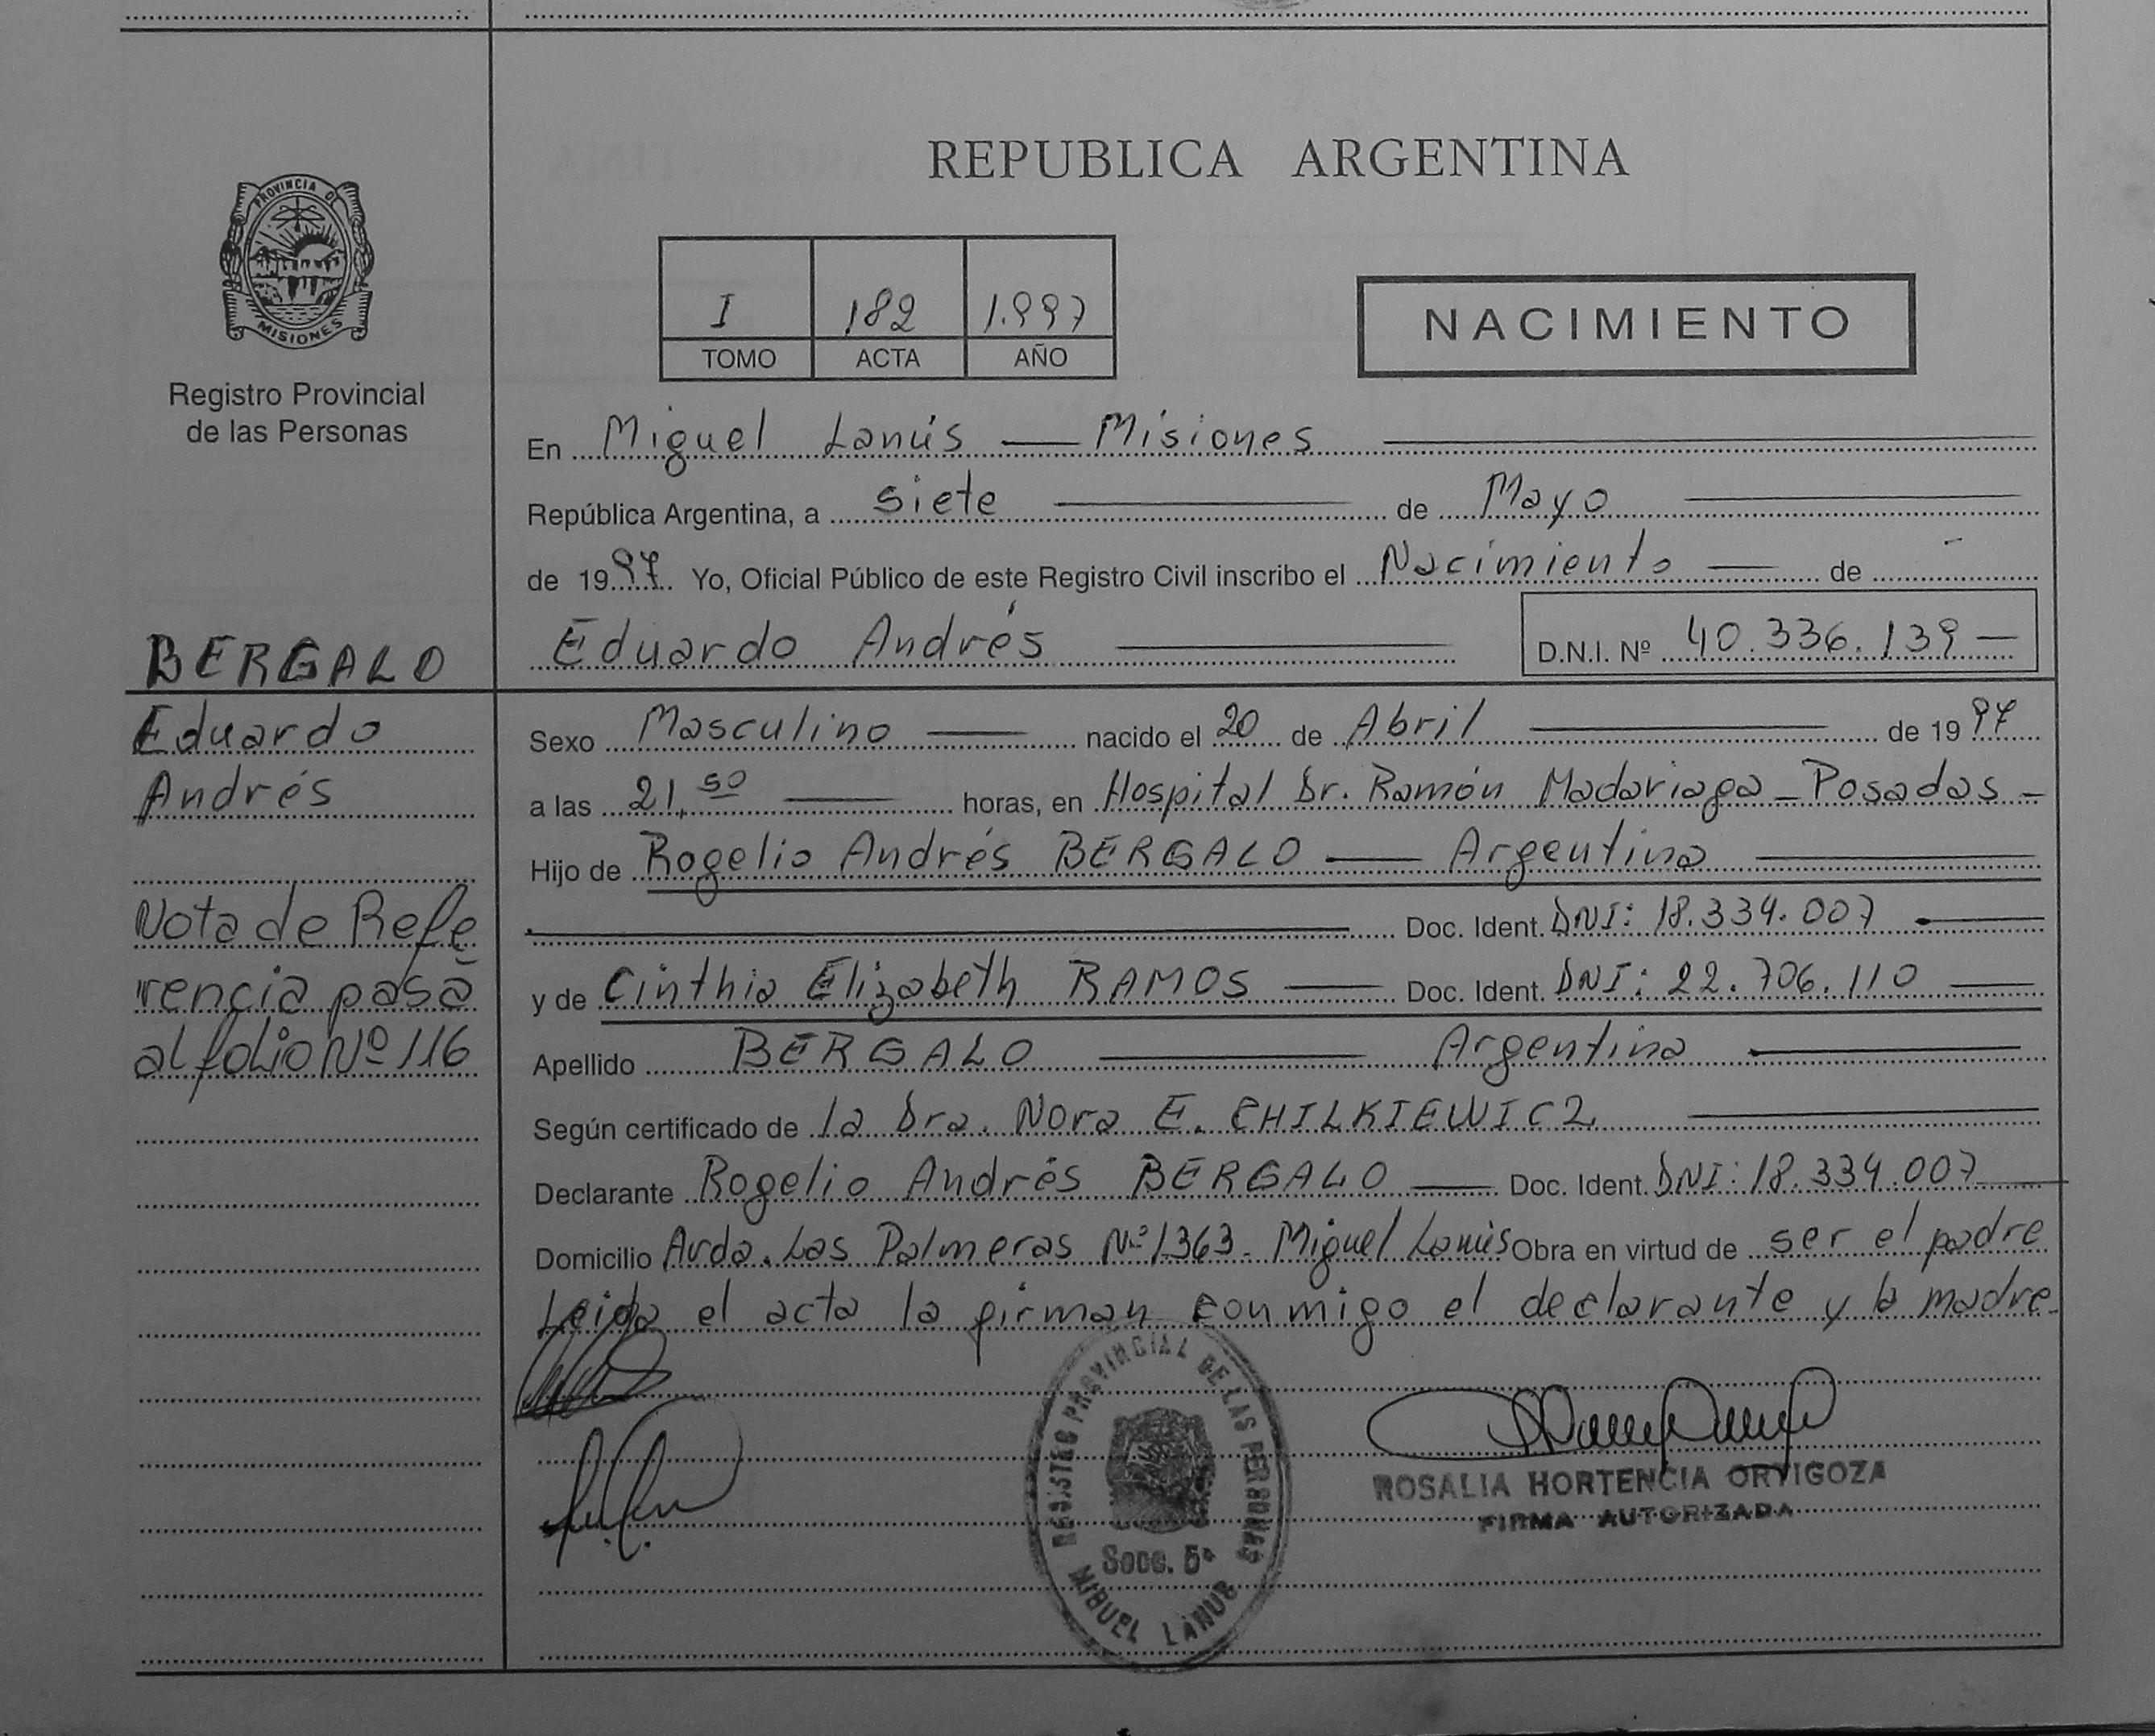 PROVINCIA DE
MISIONES
Registro Provincial
de las Personas
BERGALO
Eduardo
Andrés
Nota de Refe
rencia pasa
al folio Nº 116
REPUBLICA ARGENTINA
I 182 1.997
TOMO ACTA AÑO
NACIMIENTO
En Miguel Lanús — Misiones
República Argentina, a siete de Mayo
de 1997. Yo, Oficial Público de este Registro Civil inscribo el Nacimiento — de
Eduardo Andrés
D.N.I. Nº 40.336.139 —
Sexo Masculino — nacido el 20 de Abril — de 1997
a las 21,50 — horas, en Hospital Dr. Ramón Madariaga - Posadas -
Hijo de Rogelio Andrés BERGALO — Argentino
Doc. Ident. DNI: 18.334.007
y de Cinthia Elizabeth RAMOS — Doc. Ident. DNI: 22.706.110
Apellido BERGALO — Argentina
Según certificado de la Dra. Nora E. CHILKIEWICZ
Declarante Rogelio Andrés BERGALO — Doc. Ident. DNI: 18.334.007
Domicilio Avda. Las Palmeras Nº 1363. Miguel Lanús Obra en virtud de ser el padre
Leida el acta la firman conmigo el declarante y la madre.
REGISTRO PROVINCIAL DE LAS PERSONAS
Secc. 5ª
MIGUEL LANUS
ROSALIA HORTENCIA ORTIGOZA
FIRMA AUTORIZADA